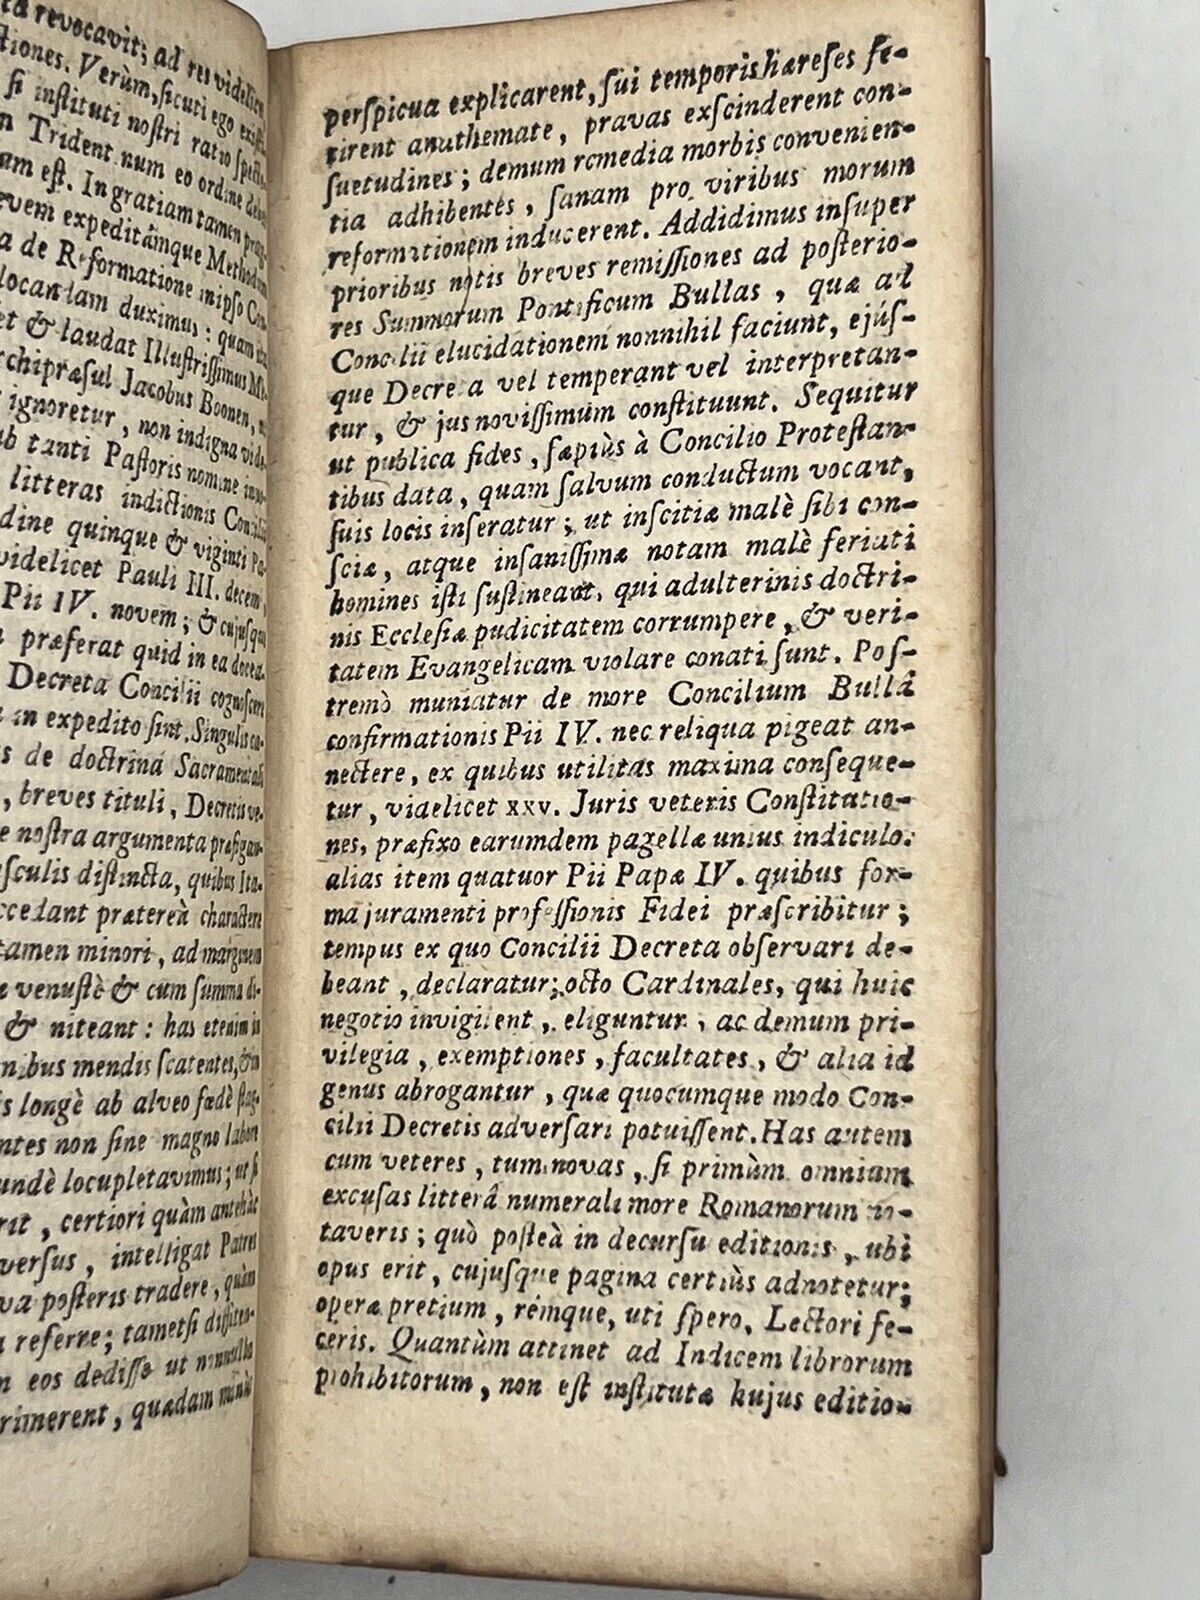 ta revocavit; ad res videlicet
ctiones. Verùm, sicuti ego existi-
si instituti nostri ratio specte-
n Trident num eo ordine debu-
am est. In gratiam tamen
evem expeditámque Methodum
a de Reformatione in ipso Con-
locandam duximus: quam ita
et & laudat Illustrissimus
rchipræsul Jacobus Boonen,
ignoretur, non indigna vide-
ub tanti Pastoris nomine
litteras indictionis Concilii
dine quinque & viginti
videlicet Pauli III. decem,
Pii IV. novem; & cujusque
præferat quid in ea docea-
Decreta Concilii cognoscere
in expedito sint. Singulis ca-
s de doctrinâ Sacramentali
, breves tituli, Decretis ve-
e nostra argumenta præfigan-
sculis distincta, quibus Ita-
ccedant prætereà charactere
tamen minori, ad marginem
venustè & cum summa di-
& niteant: has etenim in
nibus mendis scatentes, & in
s longè ab alveo fœdè stag-
ntes non sine magno labore
undè locupletavimus; ut si
rit, certiori quàm antehàc
versus, intelligat Patres
va posteris tradere, quàm
a referre; tametsi diffiten-
n eos dedisse ut nonnulla
rimerent, quædam minùs
perspicua explicarent, sui temporis hæreses fe-
rirent anathemate, pravas exscinderent con-
suetudines; demum remedia morbis convenien-
tia adhibentes, sanam pro viribus morum
reformationem inducerent. Addidimus insuper
prioribus notis breves remissiones ad posterio-
res Summorum Pontificum Bullas, quæ ad
Concilii elucidationem nonnihil faciunt, ejús-
que Decreta vel temperant vel interpretan-
tur, & jus novissimum constituunt. Sequitur
ut publica fides, sæpiùs à Concilio Protestan-
tibus data, quam salvum conductum vocant,
suis locis inseratur; ut inscitiæ malè sibi con-
sciæ, atque insanissimæ notam malè feriati
homines isti sustineant, qui adulterinis doctri-
nis Ecclesiæ pudicitatem corrumpere, & veri-
tatem Evangelicam violare conati sunt. Pos-
tremò muniatur de more Concilium Bullâ
confirmationis Pii IV. nec reliqua pigeat an-
nectere, ex quibus utilitas maxima conseque-
tur, videlicet xxv. Juris veteris Constitutio-
nes, præfixo earumdem pagellæ unius indiculo:
alias item quatuor Pii Papæ IV. quibus for-
ma juramenti professionis Fidei præscribitur;
tempus ex quo Concilii Decreta observari de-
beant, declaratur; octo Cardinales, qui huic
negotio invigilent, eliguntur, ac demum pri-
vilegia, exemptiones, facultates, & alia id
genus abrogantur, quæ quocumque modo Con-
cilii Decretis adversari potuissent. Has autem
cum veteres, tum novas, si primùm omnium
excusas litterâ numerali more Romanorum no-
taveris; quò posteà in decursu editionis, ubi
opus erit, cujusque pagina certiùs adnotetur;
operæ pretium, rémque, uti spero, Lectori fe-
ceris. Quantùm attinet ad Indicem librorum
prohibitorum, non est institutæ hujus editio-